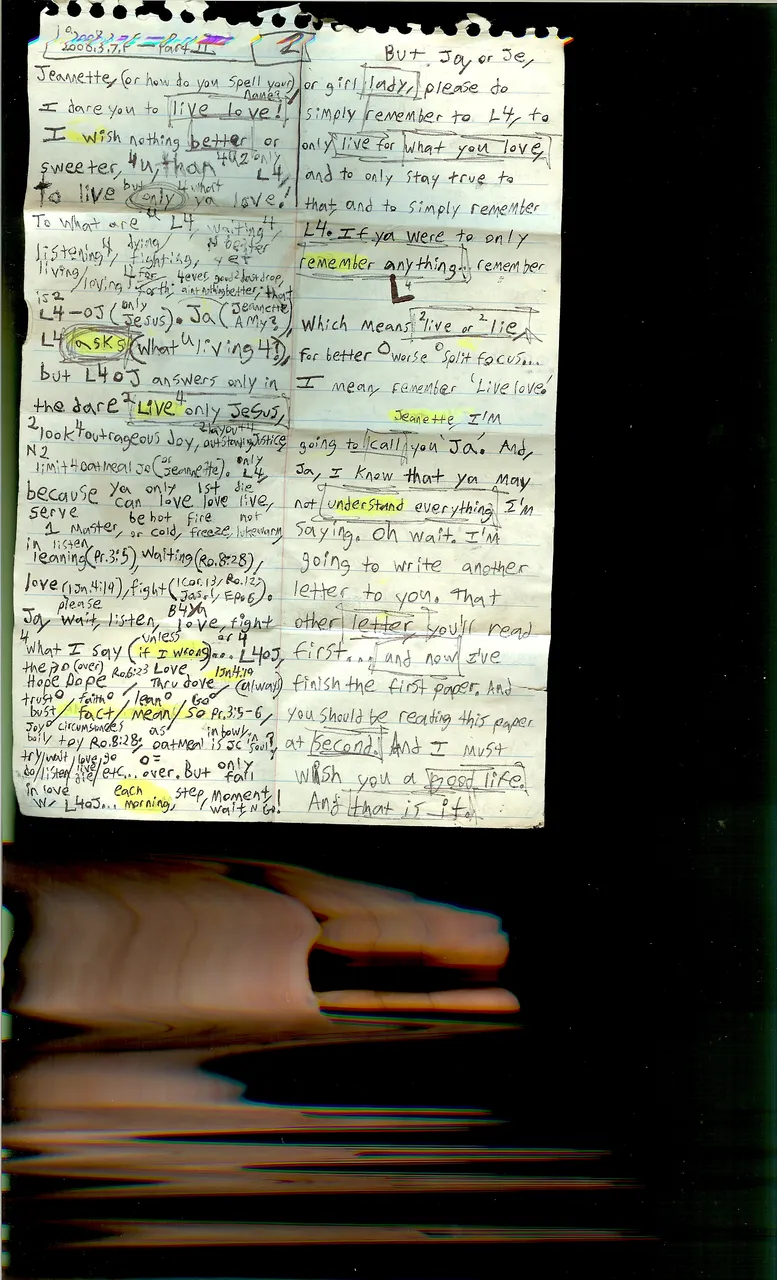 2008.3.7.F — Part II
2
Jeannette, (or how do you spell your name?)
I dare you to live love!
I wish nothing better or
sweeter, 4u, than 4u2 only L4,
To live but only 4 what ya love!
To what are u L4, waiting 4,
listening 4, dying, fighting, yet
living/loving 4ever, good 2 last drop,
is 2
L4-OJ (only Jesus). Ja (Jeannette Amy?),
L4 asks (what u living 4?),
but L4OJ answers only in
the dare 2 Live 4 only Jesus,
2 look 4 outrageous Joy, Justice,
N 2
limit 4 oatmeal Jo (or Jeannette). only L4,
because ya only 1st die
can love love live,
serve be hot fire not
1 Master, or cold, freeze, lukewarm,
in listen,
leaning (Pr.3:5), waiting (Ro.8:28),
love (1Jn.4:19), fight (1Cor.13, Ro.12,
Jas.1, Ep.6).
please B4 Ya
Ja, wait, listen, love, fight
4 unless or 4
what I say (if I wrong)... L4OJ,
Ro6:23 Love 1Jn4:19
Hope Dope, Thru dove,
trust faith lean Go
bust/fact/mean/so Pr.3:5-6,
Joy circumstances as in bowl, in
boil, try Ro.8:28, oatmeal is JC soul?
try/wait/love/go only
do/listen/live die/etc... over. But fall
in love each step, Moment,
w/ L4OJ... morning, wait, N Go!
But Ja, or Je,
or girl lady, please do
simply remember to L4, to
only live for what you love,
and to only stay true to
that, and to simply remember
L4. If ya were to only
remember anything... remember
L4
Which means 2 live or 2 lie,
for better o worse o split focus...
I mean, remember 'Live love!'
Jeanette, I'm
going to call you 'Ja'. And,
Ja, I know that ya may
not understand everything I'm
saying. Oh wait. I'm
going to write another
letter to you. That
other letter you'll read
first... and now I've
finish the first paper. And
you should be reading this paper
at second. And I must
wish you a good life.
And that is it.